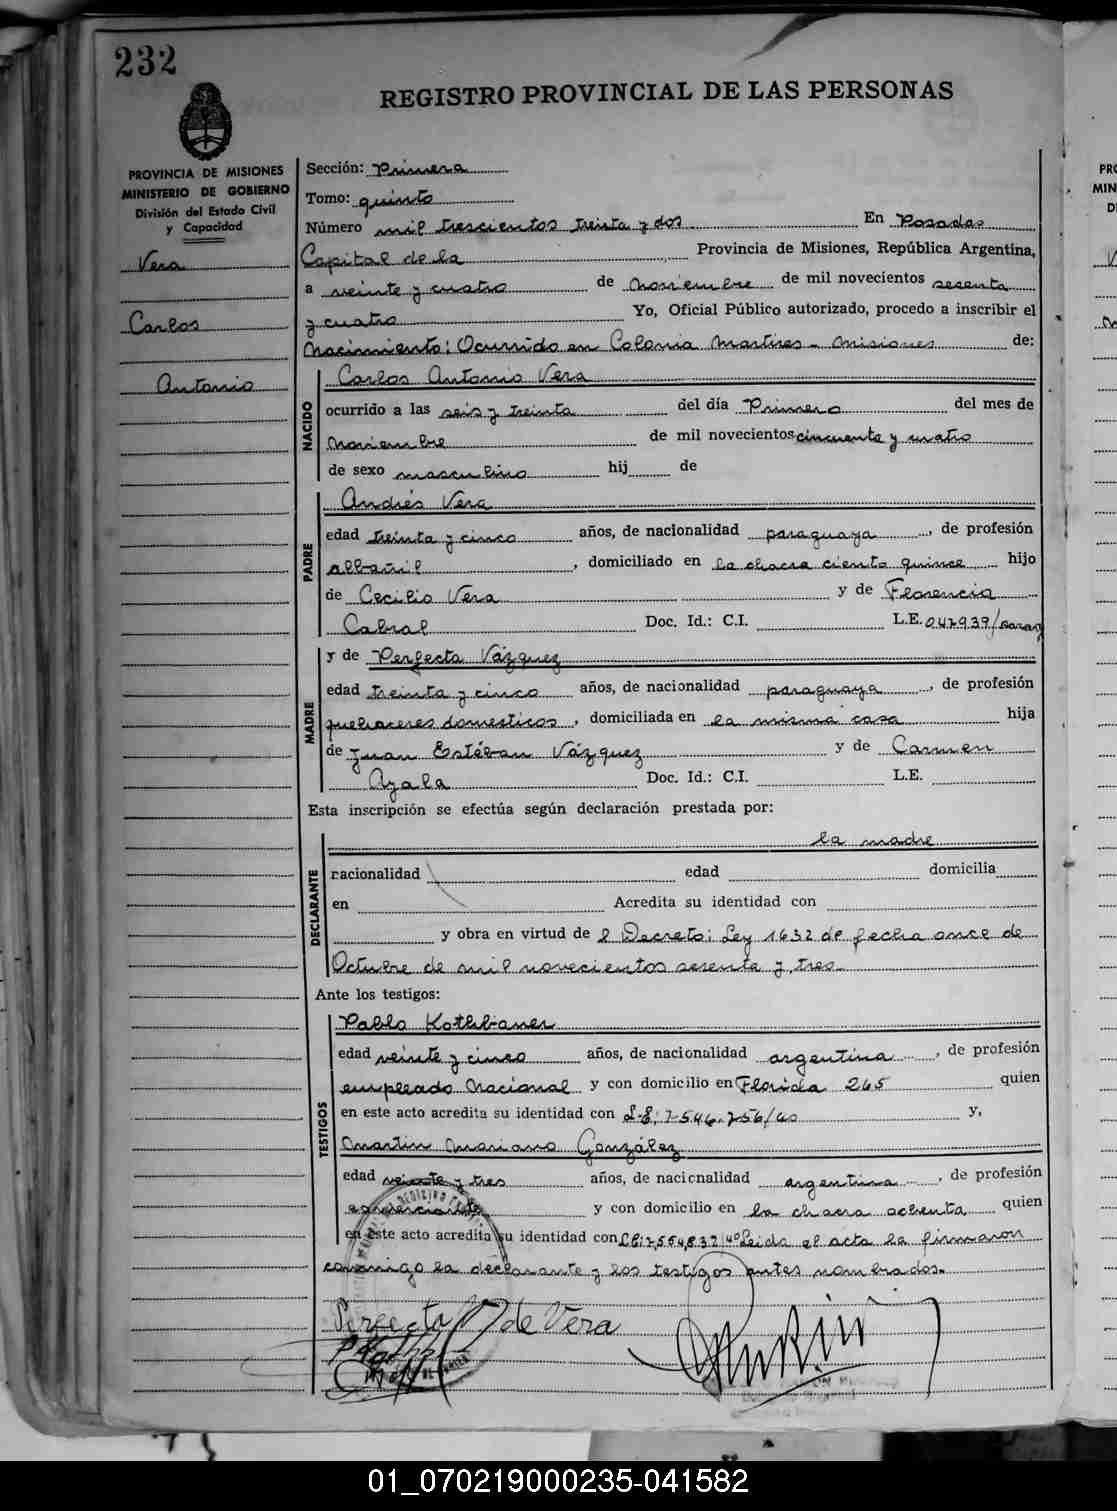 232
REGISTRO PROVINCIAL DE LAS PERSONAS
PROVINCIA DE MISIONES
MINISTERIO DE GOBIERNO
División del Estado Civil
y Capacidad
Vera
Carlos
Antonio
Sección: Primera
Tomo: quinto
Número mil trescientos treinta y dos. En Posadas
Capital de la Provincia de Misiones, República Argentina,
a veinte y cuatro de Noviembre de mil novecientos sesenta
y cuatro Yo, Oficial Público autorizado, procedo a inscribir el
Nacimiento: Ocurrido en Colonia Martires - Misiones de:
NACIDO
Carlos Antonio Vera
ocurrido a las seis y treinta del día Primero del mes de
Noviembre de mil novecientos cincuenta y cuatro
de sexo masculino hij de
PADRE
Andrés Vera
edad treinta y cinco años, de nacionalidad paraguaya, de profesión
albañil, domiciliado en la chacra ciento quince hijo
de Cecilio Vera y de Florencia
Cabral Doc. Id.: C.I. L.E. 047939/parag
MADRE
y de Perfecta Vázquez
edad treinta y cinco años, de nacionalidad paraguaya, de profesión
quehaceres domesticos, domiciliada en la misma casa hija
de Juan Estéban Vázquez y de Carmen
Ayala Doc. Id.: C.I. L.E.
Esta inscripción se efectúa según declaración prestada por:
DECLARANTE
la madre
nacionalidad edad domicilia
en Acredita su identidad con
y obra en virtud de l Decreto: Ley 1632 de fecha once de
Octubre de mil novecientos sesenta y tres.
Ante los testigos:
TESTIGOS
Pablo Kothbauer
edad veinte y cinco años, de nacionalidad argentina, de profesión
empleado Nacional y con domicilio en Florida 265 quien
en este acto acredita su identidad con L.E: 7.546.756/60 y,
Martin Mariano González
edad veinte y tres años, de nacionalidad argentina, de profesión
comerciante y con domicilio en la chacra ochenta quien
en este acto acredita su identidad con LE: 7.554.832 Leida el acta la firmaron
conmigo la declarante y los testigos antes nombrados.
Perfecta V de Vera
01_070219000235-041582